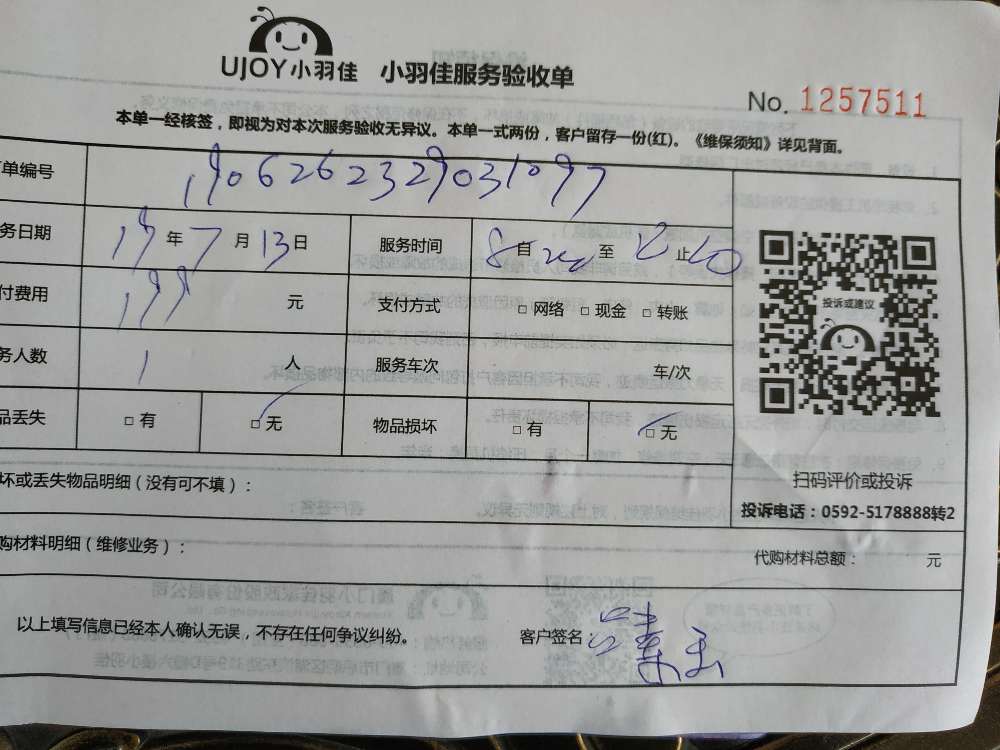 UJOY小羽佳 小羽佳服务验收单
No. 1257511
本单一经核签，即视为对本次服务验收无异议。本单一式两份，客户留存一份(红)。《维保须知》详见背面。
单编号 1906262329031097
务日期 19年7月13日 服务时间 8自 至 止
付费用 199 元 支付方式 □ 网络 □ 现金 □ 转账
务人数 1 人 服务车次 车/次
品丢失 □ 有 □ 无 物品损坏 □ 有 □ 无
投诉或建议
扫码评价或投诉
投诉电话：0592-5178888转2
坏或丢失物品明细（没有可不填）：
购材料明细（维修业务）： 代购材料总额： 元
以上填写信息已经本人确认无误，不存在任何争议纠纷。 客户签名：